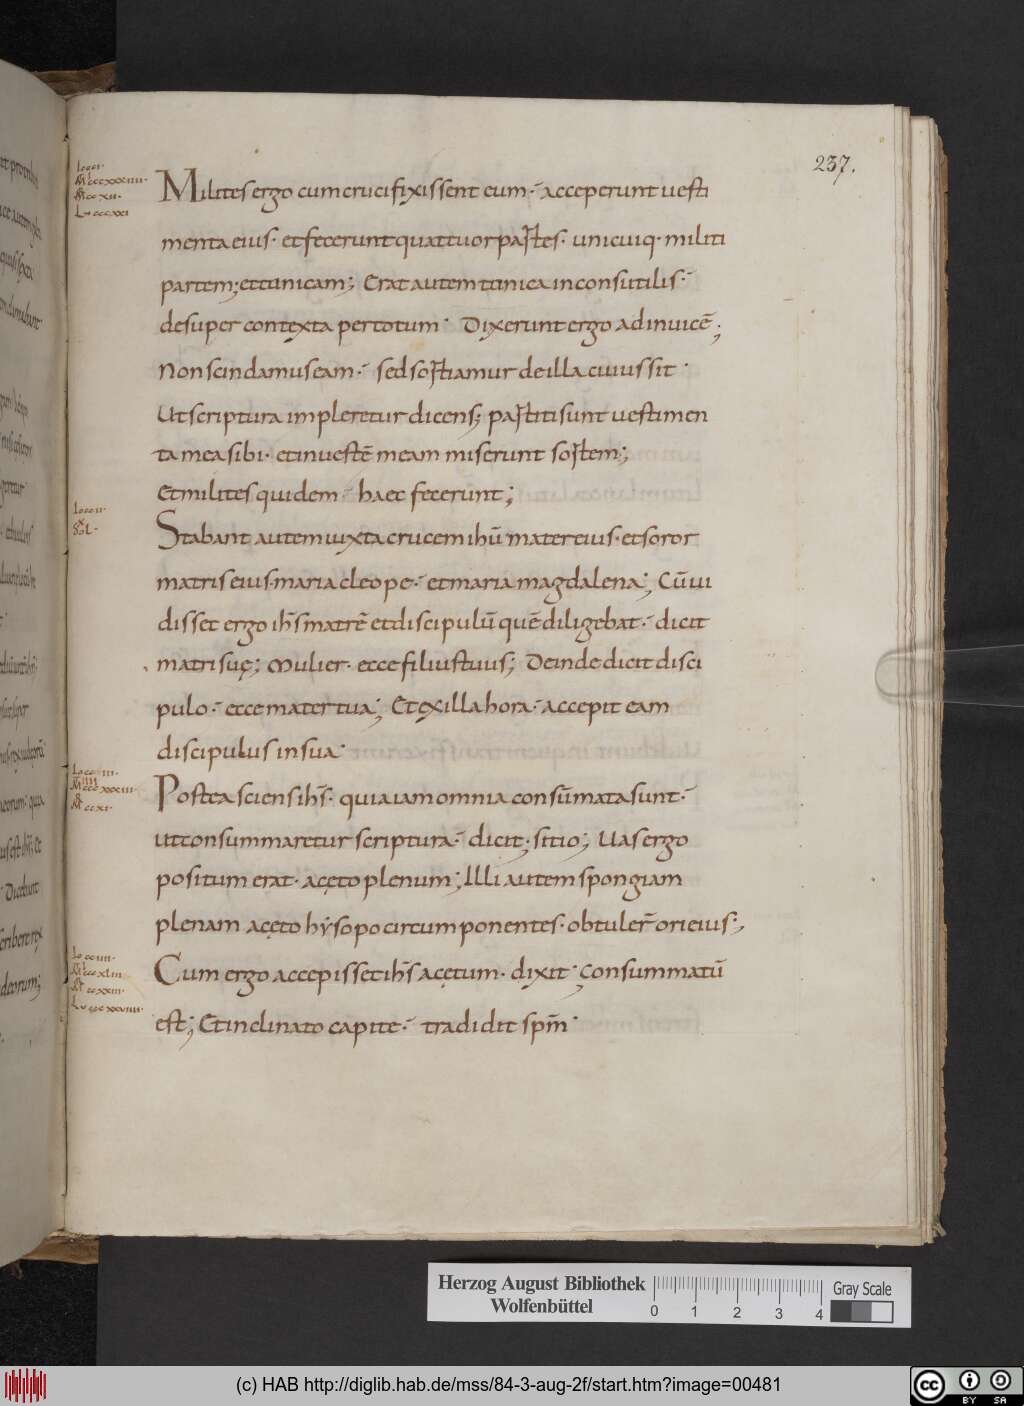 237.
Milites ergo cum crucifixissent eum· acceperunt uesti
menta eius· et fecerunt quattuor partes· unicuiq· militi
partem; et tunicam; Erat autem tunica inconsutilis·
desuper contexta per totum· Dixerunt ergo ad inuicē;
Non scindamus eam· sed sortiamur de illa cuius sit·
Ut scriptura impleretur dicens; partiti sunt uestimen
ta mea sibi· et in uestē meam miserunt sortem;
Et milites quidem· haec fecerunt;
Stabant autem iuxta crucem ihū mater eius· et soror
matris eius maria cleope· et maria magdalena; Cū ui
disset ergo ihs̄ matrē et discipulū quē diligebat· dicit
matri suę; Mulier· ecce filius tuus; Deinde dicit disci
pulo· ecce mater tua; Et ex illa hora· accepit eam
discipulus in sua·
Postea sciens ihs̄· quia iam omnia consūmata sunt·
ut consummaretur scriptura· dicit; sitio; Uas ergo
positum erat· acęto plenum; Illi autem spongiam
plenam acęto hẏsopo circumponentes· obtuler̄ ori eius;
Cum ergo accepisset ihs̄ acętum· dixit; Consummatū
est; Et inclinato capite· tradidit spm̄·
Herzog August Bibliothek
Wolfenbüttel
0 1 2 3 4
Gray Scale
(c) HAB http://diglib.hab.de/mss/84-3-aug-2f/start.htm?image=00481
cc BY SA